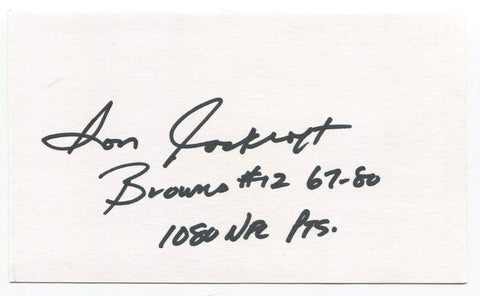 Don Cockroft
Browns #12 67-80
1080 NFL Pts.